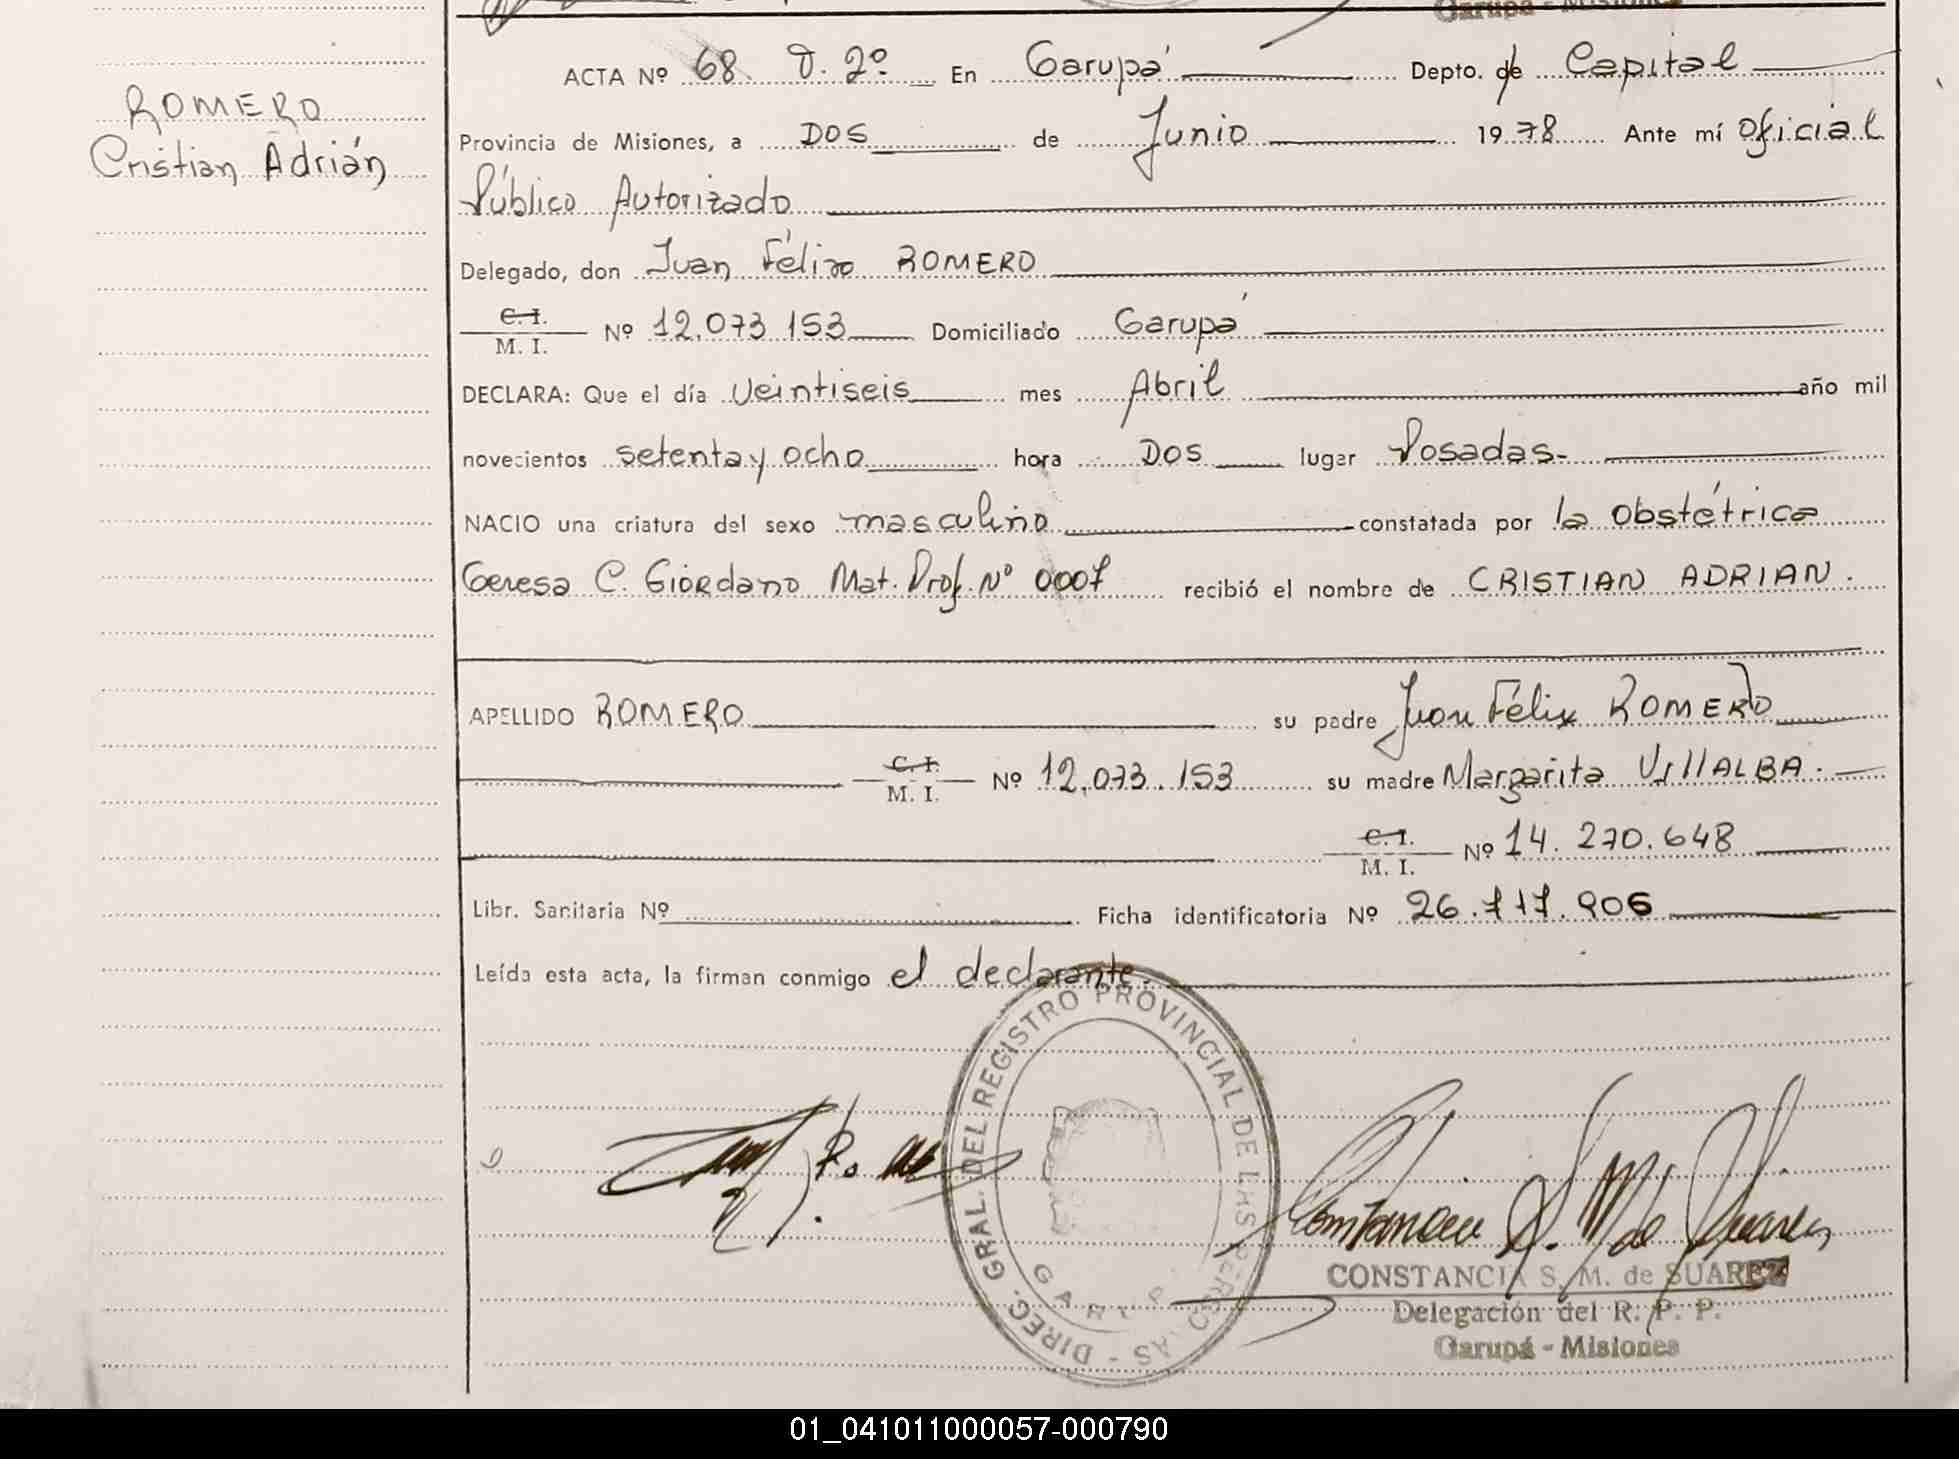 Garupá - Misiones
ROMERO
Cristian Adrián
ACTA Nº 68 T. 2º En Garupá Depto. de Capital
Provincia de Misiones, a DOS de Junio 1978 Ante mí Oficial
Público Autorizado
Delegado, don Juan Félix ROMERO
C. I.
M. I. Nº 12.073.153 Domiciliado Garupá
DECLARA: Que el día Veintiseis mes Abril año mil
novecientos setenta y ocho hora DOS lugar Posadas-
NACIO una criatura del sexo masculino constatada por la Obstétrica
Teresa C. Giordano Mat. Prof. Nº 0007 recibió el nombre de CRISTIAN ADRIAN.
APELLIDO ROMERO su padre Juan Félix ROMERO
C. I.
M. I. Nº 12.073.153 su madre Margarita VIllALBA.
C. I.
M. I. Nº 14.270.648
Libr. Sanitaria Nº Ficha identificatoria Nº 26.717.906
Leída esta acta, la firman conmigo el declarante.
DIREC. GRAL. DEL REGISTRO PROVINCIAL DE LAS PERSONAS
GARUP
Constancia S. M. de Suarez
CONSTANCIA S. M. de SUAREZ
Delegación del R. P. P.
Garupá - Misiones
01_041011000057-000790